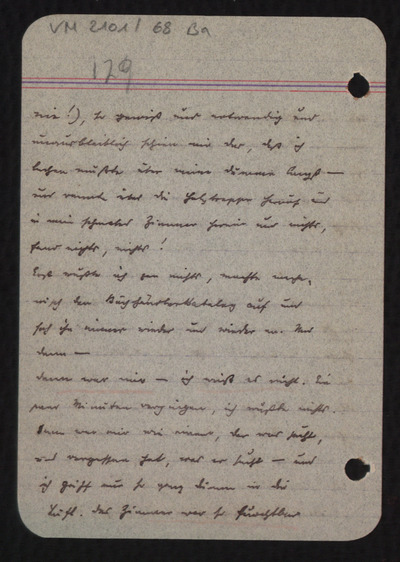 VM 2101/ 68 Ba
129
nie!), so gewiß und notwendig und
unausbleiblich schien mir das, daß ich
lachen mußte über meine dumme Angst —
und rannte über die Holztreppe herauf und
in mein schmales Zimmer herein und nichts,
fand nichts, nichts!
Erst wußte ich gar nichts, machte
den Buchhändlerkatalog auf und
sah ihn immer wieder und wieder an. Und
dann —
dann war mir — ich weiß es nicht. Ein
paar Minuten vergingen, ich wußte nichts.
Dann war mir wie einem, der was sucht,
und vergessen hat, was er sucht — und
ich griff nur so ganz dumm in die
Luft. Das Zimmer war so furchtbar